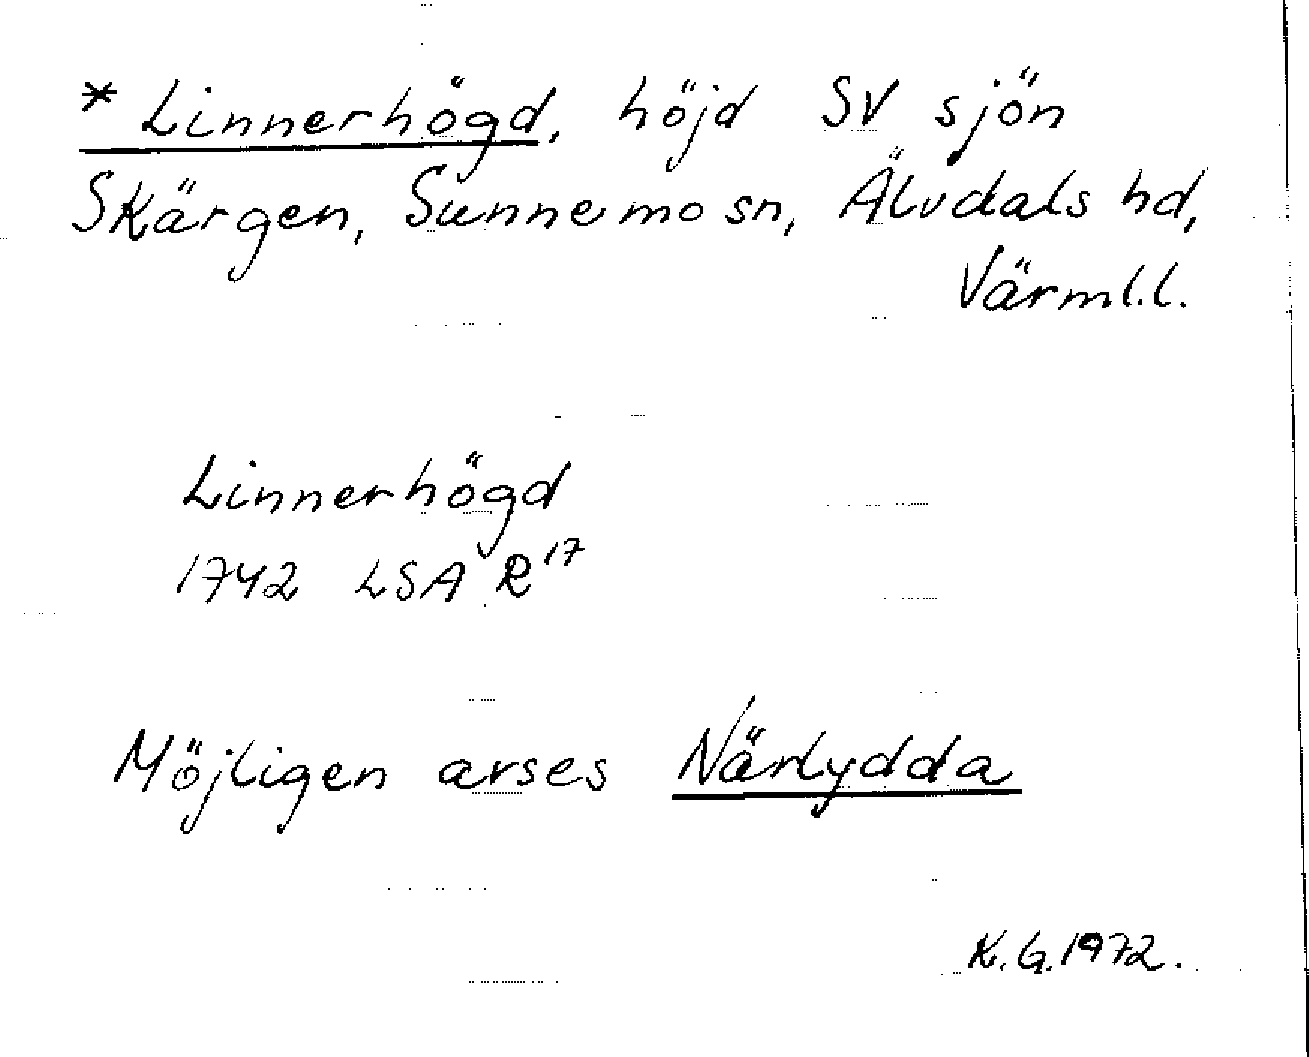 * Linnerhögd, höjd SV sjön
Skärgen, Sunnemo sn, Älvdals hd,
Värml.l.
Linnerhögd
1742 LSA R 17
Möjligen avses Närlydda
K.G. 1972.